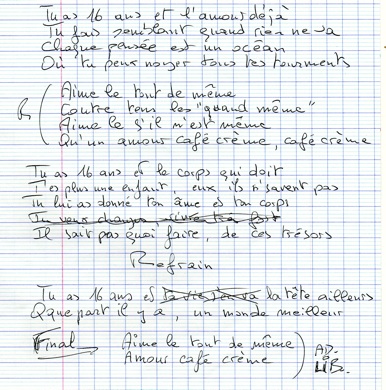 Tu as 16 ans et l'amour déjà
Tu fais semblant quand rien ne va
Chaque pensée est un océan
Où tu peux noyer tous tes tourments
R
Aime le tout de même
Contre tous les "quand même"
Aime le s'il n'est même
Qu'un amour café crème, café crème
Tu as 16 ans et le corps qui doit
T'es plus une enfant, eux ils n'savent pas
Tu lui as donné ton âme et ton corps
Tu veux changer
Il sait pas quoi faire, de ces trésors
Refrain
Tu as 16 ans et la tête ailleurs
Qque part il y a, un monde meilleur
Final Aime le tout de même
Amour café crème